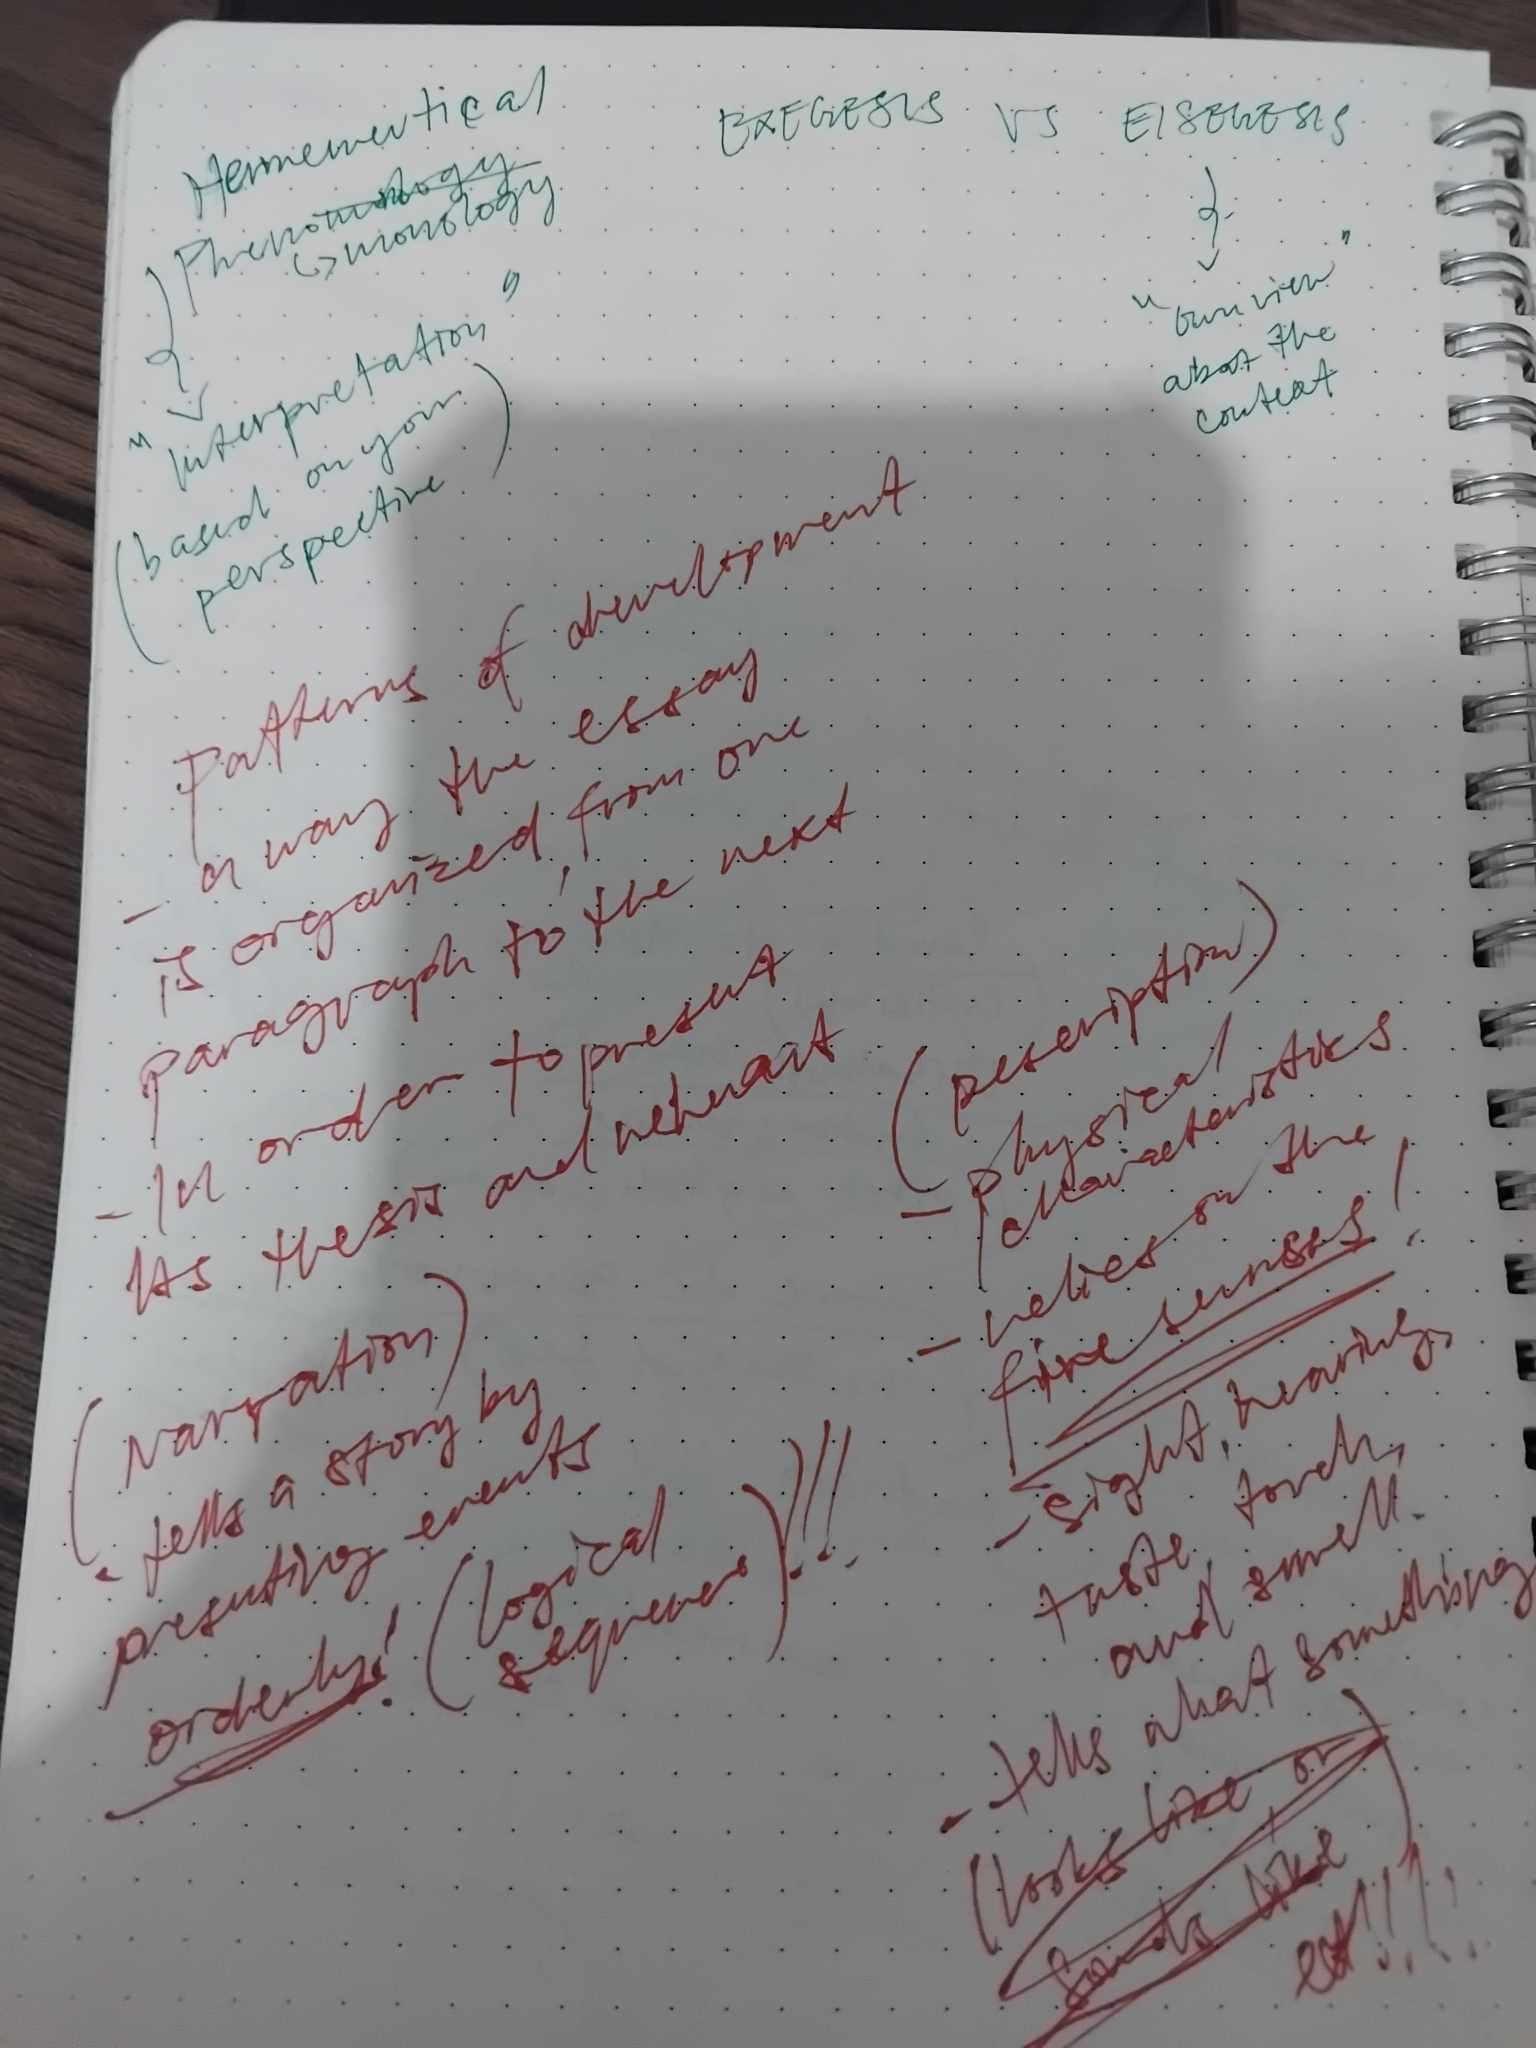 Hermeneutical
Phenomonology
↳ monology
"interpretation"
(based on your
perspective)
EXEGESIS VS EISEGESIS
"own view"
about the
context
Patterns of development
- a way the essay
is organized, from one
paragraph to the next
- In order to present
its thesis and
(Narration)
- tells a story by
presenting events
orderly! (logical
sequence)!!!
(Description)
- physical
characteristics
- relies on the
five senses!
- sight, hearing,
taste, touch,
and smell.
- tells what something
(looks like, or
sounds like)
etc!!!!